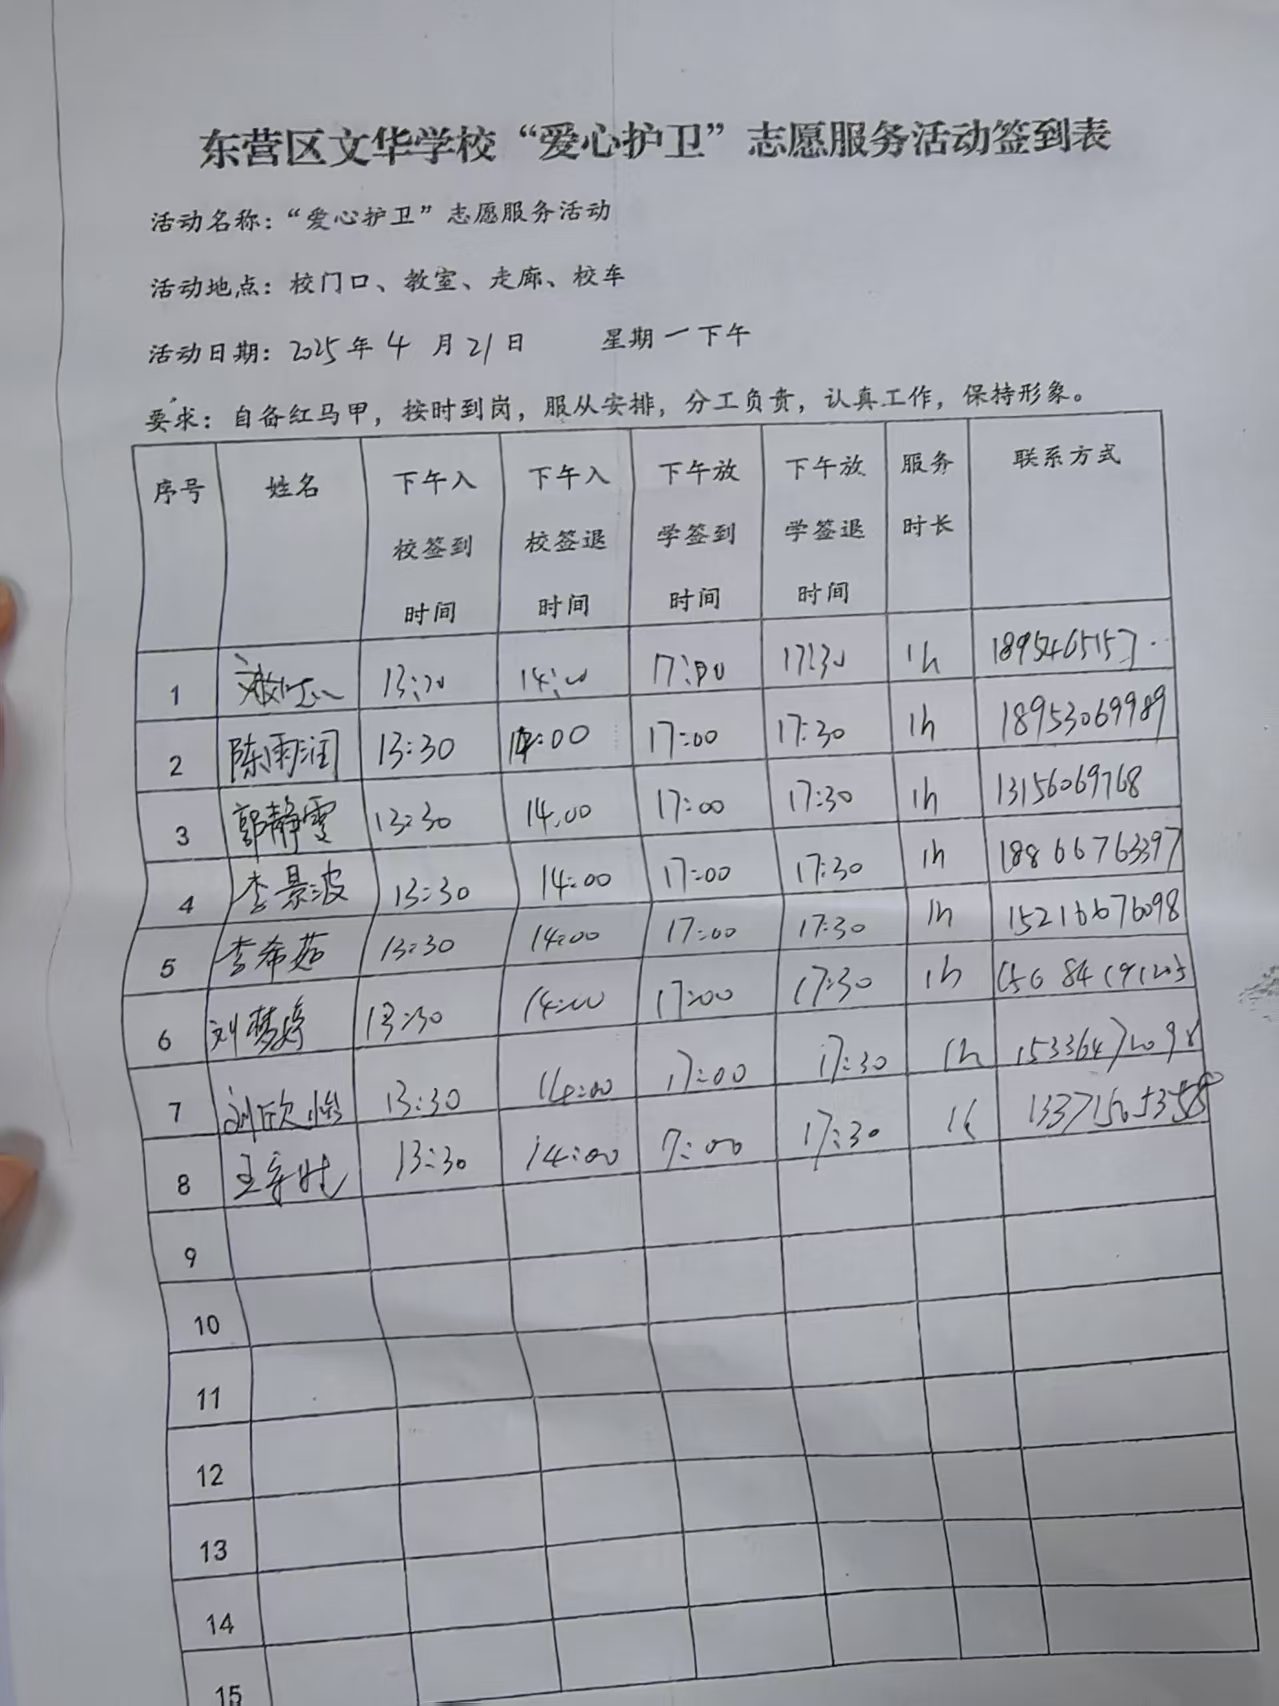 东营区文华学校“爱心护卫”志愿服务活动签到表
活动名称：“爱心护卫”志愿服务活动
活动地点：校门口、教室、走廊、校车
活动日期：2025年4月21日 星期一下午
要求：自备红马甲，按时到岗，服从安排，分工负责，认真工作，保持形象。
序号 姓名 下午入校签到时间 下午入校签退时间 下午放学签到时间 下午放学签退时间 服务时长 联系方式
1 17:30 1h
2 陈雨润 13:30 14:00 17:00 17:30 1h 18953069989
3 郭静雯 13:30 14.00 17:00 17:30 1h 13156069768
4 李景波 13:30 14:00 17:00 17:30 1h 18866763397
5 李希茹 13:30 14:00 17:00 17:30 1h 15216676098
6 刘梦婷 13:30 14:00 17:00 17:30 1h
7 刘欣怡 13:30 14:00 17:00 17:30 1h 15336472098
8 13:30 14:00 7:00 17:30
9
10
11
12
13
14
15